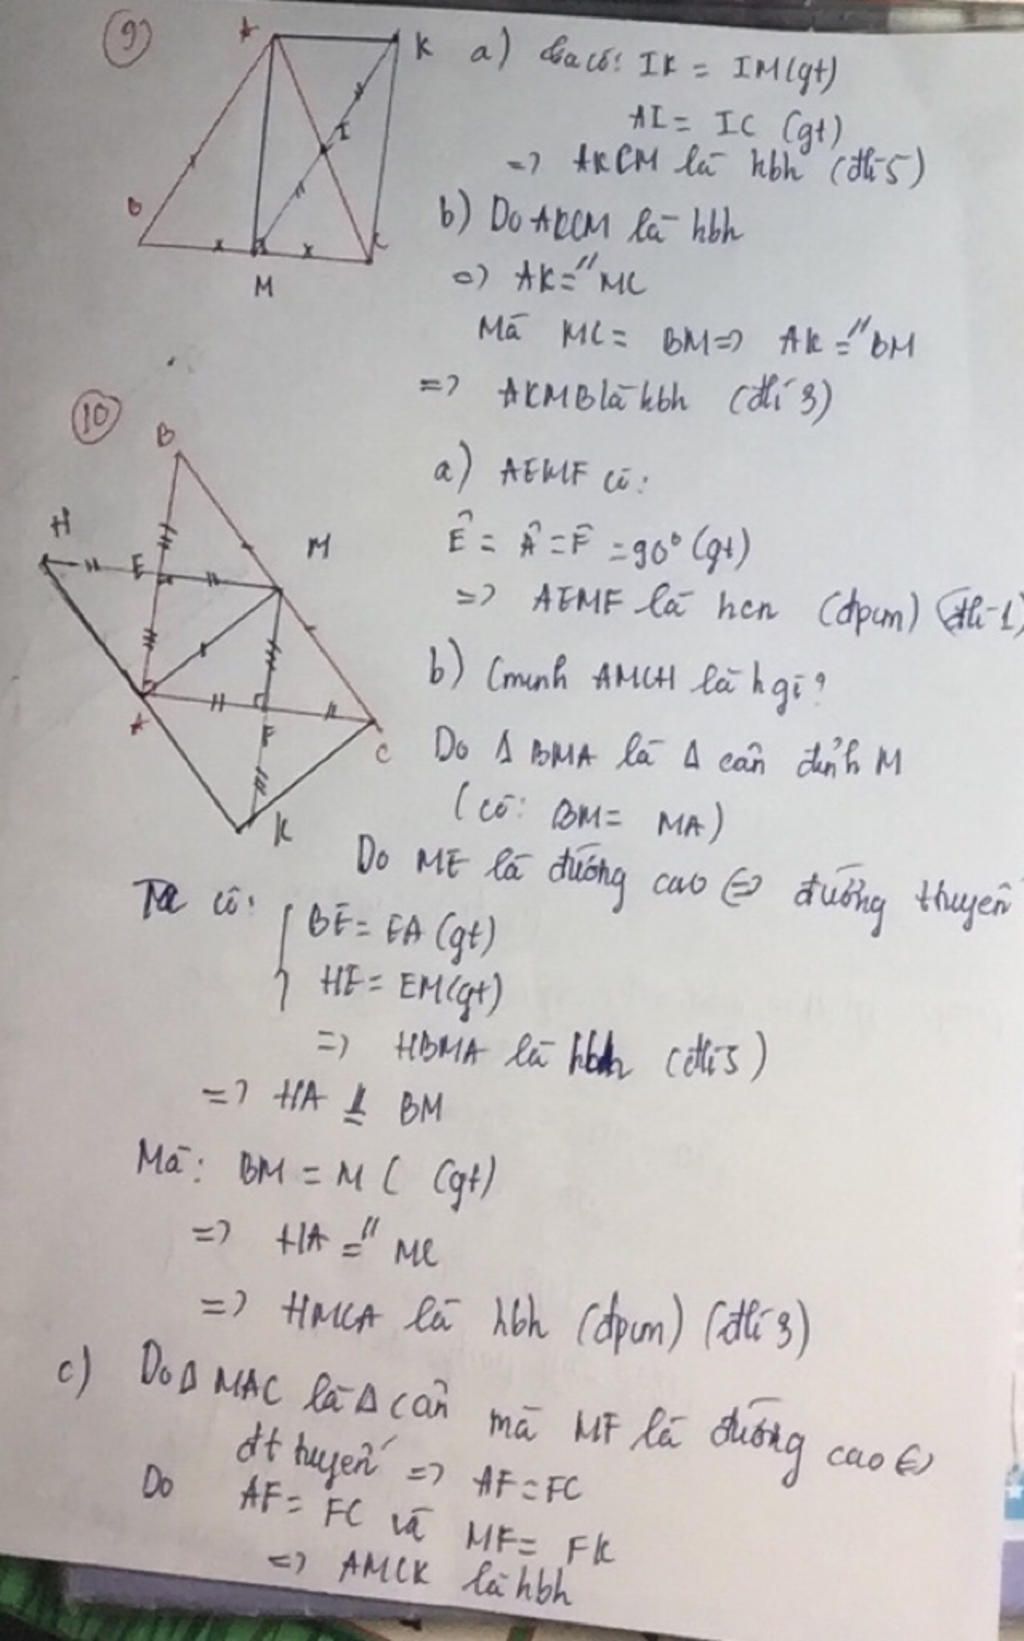 9)
A
K
I
B
M
C
a) Ta có: IK = IM (gt)
AI = IC (gt)
=> AKCM là hbh (dhi 5)
b) Do AKCM là hbh
=> AK =// MC
Mà MC = BM => AK =// BM
=> AKMB là hbh (dhi 3)
10
B
H
E
M
A
F
C
K
a) AEMF có:
Ê = Â = F̂ = 90° (gt)
=> AEMF là hcn (đpcm) (dhi 1)
b) Cminh AMCH là h gì?
Do Δ BMA là Δ cân đỉnh M
(có: BM = MA)
Do ME là đường cao <=> đường thuyến
Ta có: { BE = EA (gt)
HE = EM (gt)
=> HBMA là hbh (dhi 5)
=> HA =// BM
Mà: BM = MC (gt)
=> HA =// MC
=> HMCA là hbh (đpcm) (dhi 3)
c) Do Δ MAC là Δ cân mà MF là đường cao <=>
đt tuyến => AF = FC
Do AF = FC và MF = FK
=> AMCK là hbh